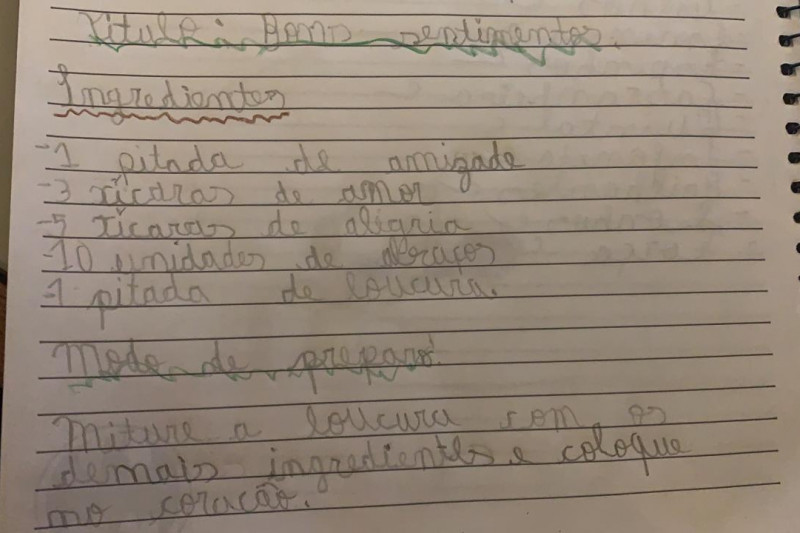 Titulo: Bons sentimentos.
Ingredientes
-1 pitada de amizade
-3 xícaras de amor
-5 xícaras de aligria
-10 unidades de abraços
-1 pitada de loucura.
Modo de preparo:
Miture a loucura com os
demais ingredientes e coloque
no coração.